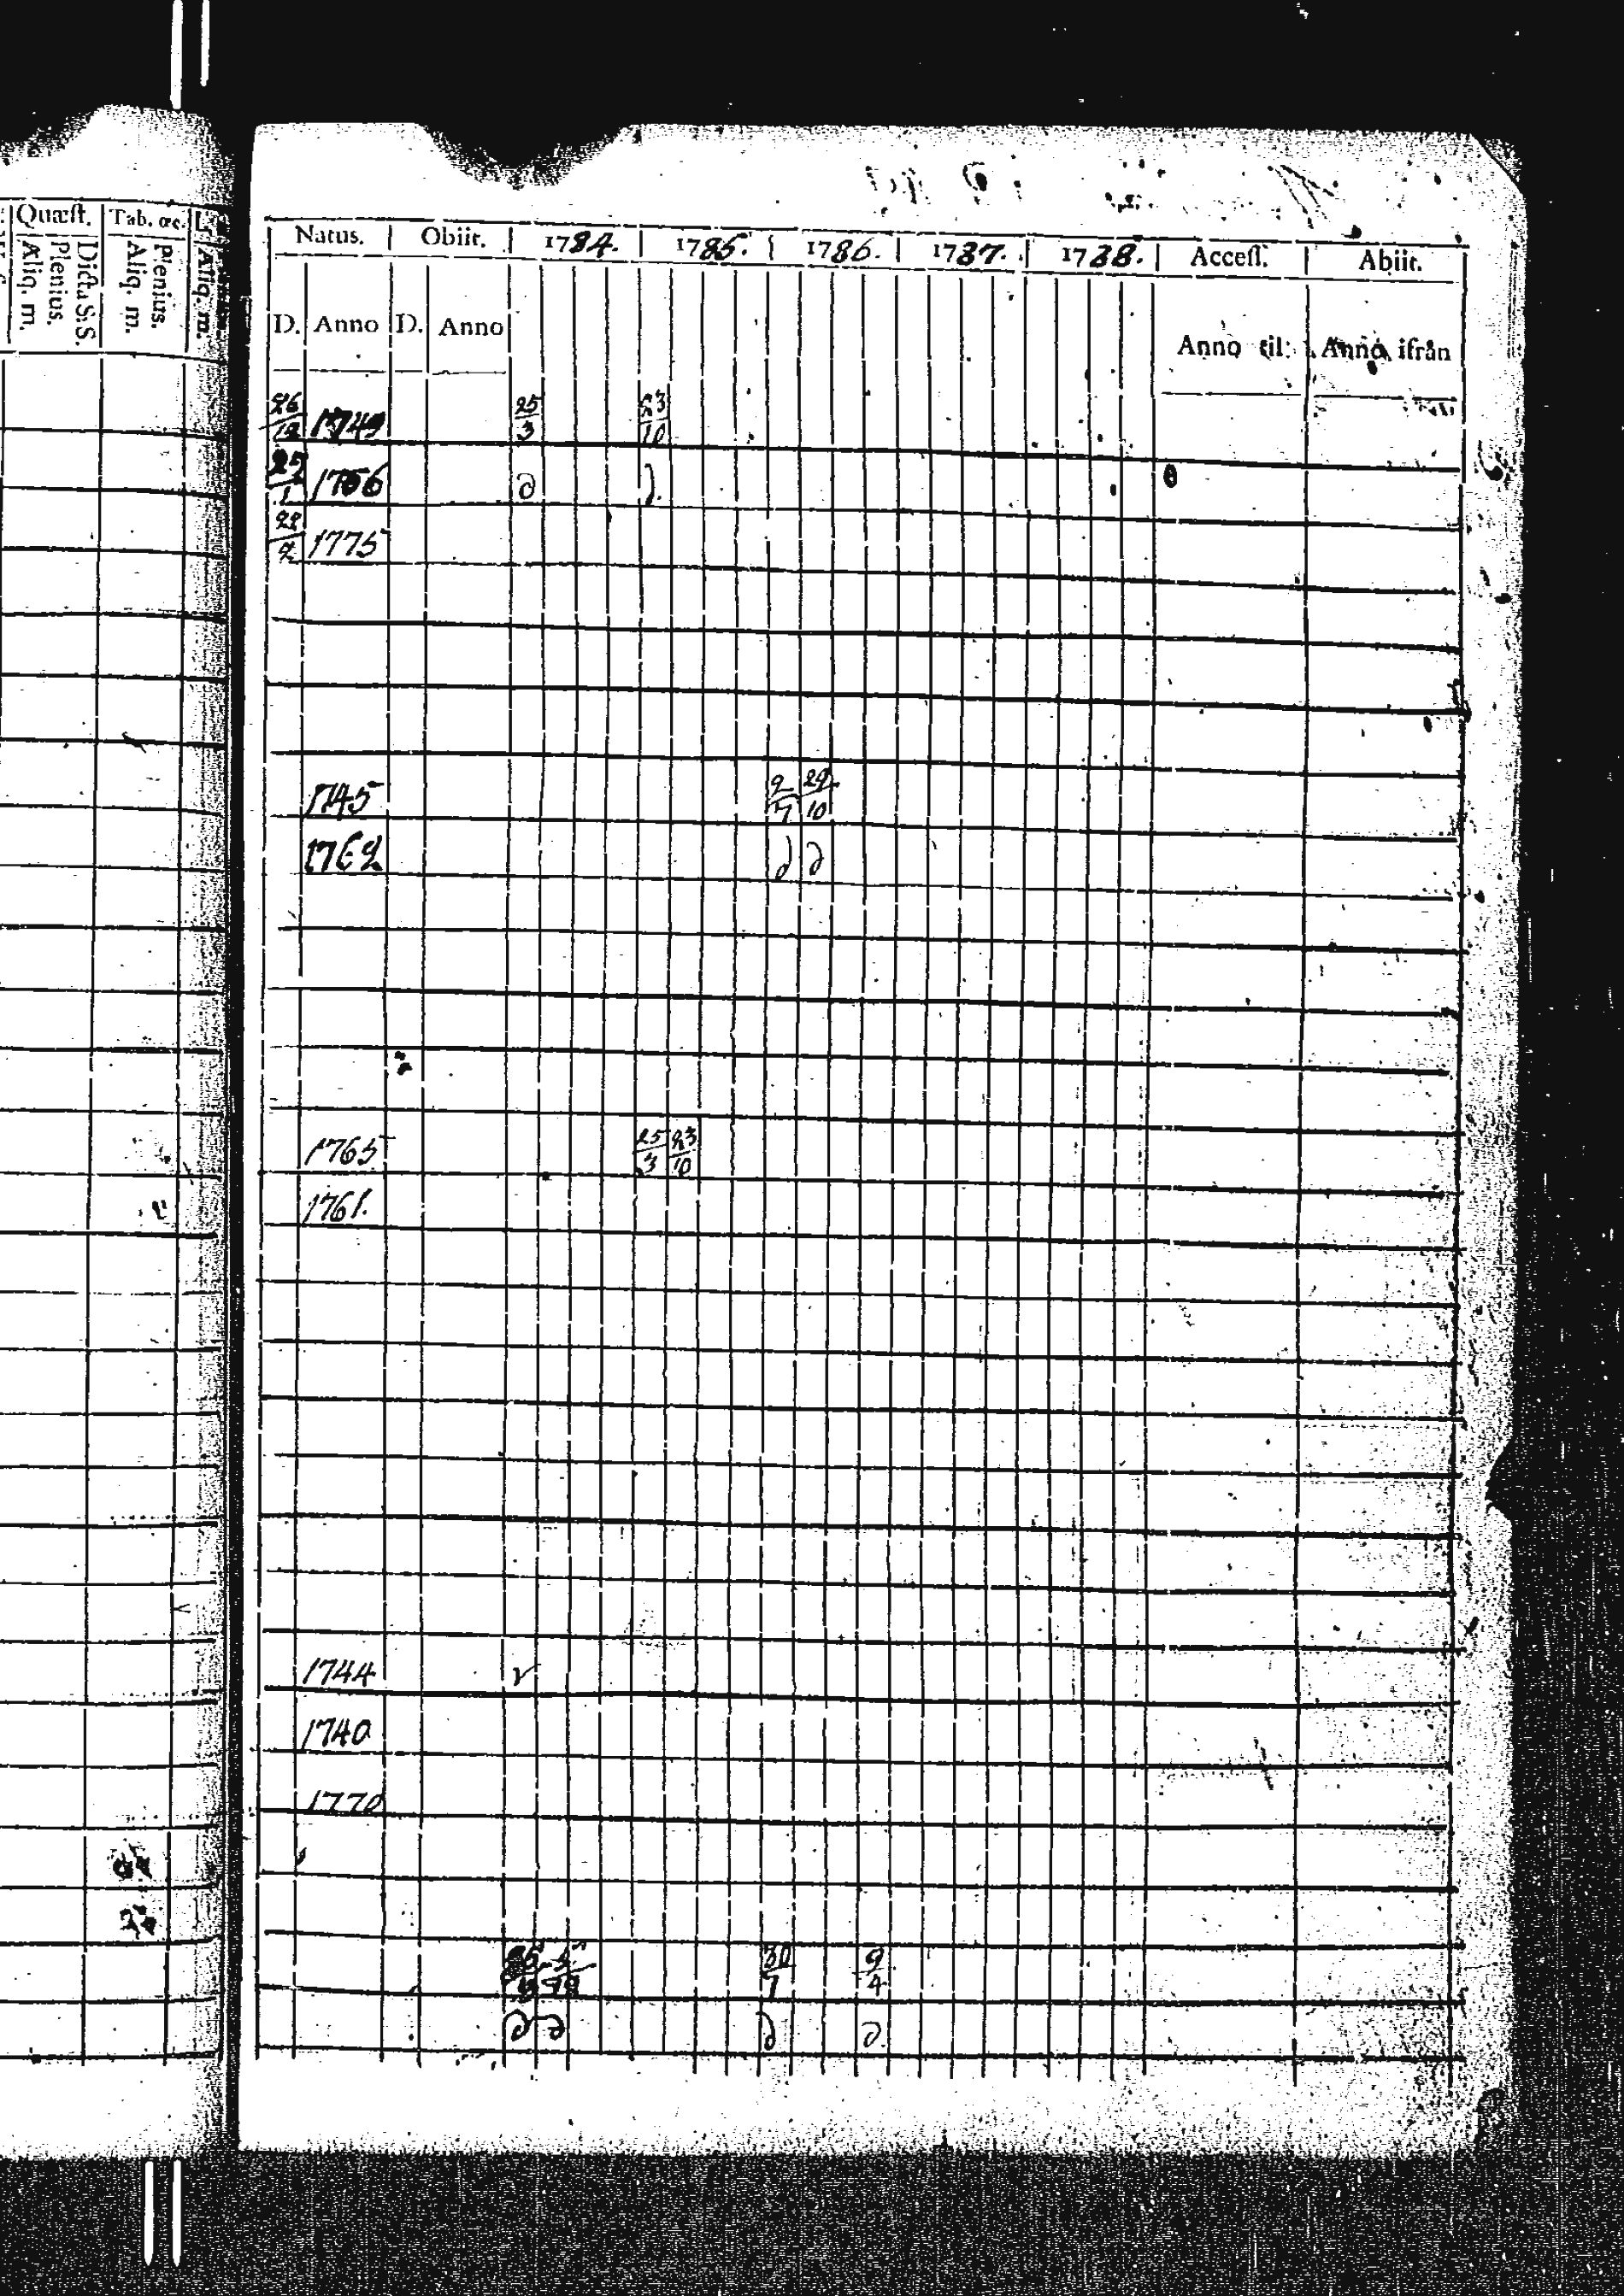 Quæſt. Tab. œc.
Dicta S. S.
Plenius.
Aliq. m.
Plenius.
Aliq. m.
Aliq. m.
Natus. Obiit. 1784. 1785. 1786. 1787. 1788. Acceſſ. Abiit.
D. Anno D. Anno Anno til: Anno ifrån
26/12 1749 25/3 23/10
25/1 1766 d d
22/2 1775
1745 2/7 29/10
1762 d d
1765 25/3 23/10
1761.
1744
1740
1770
30/7 9/4
d d d d